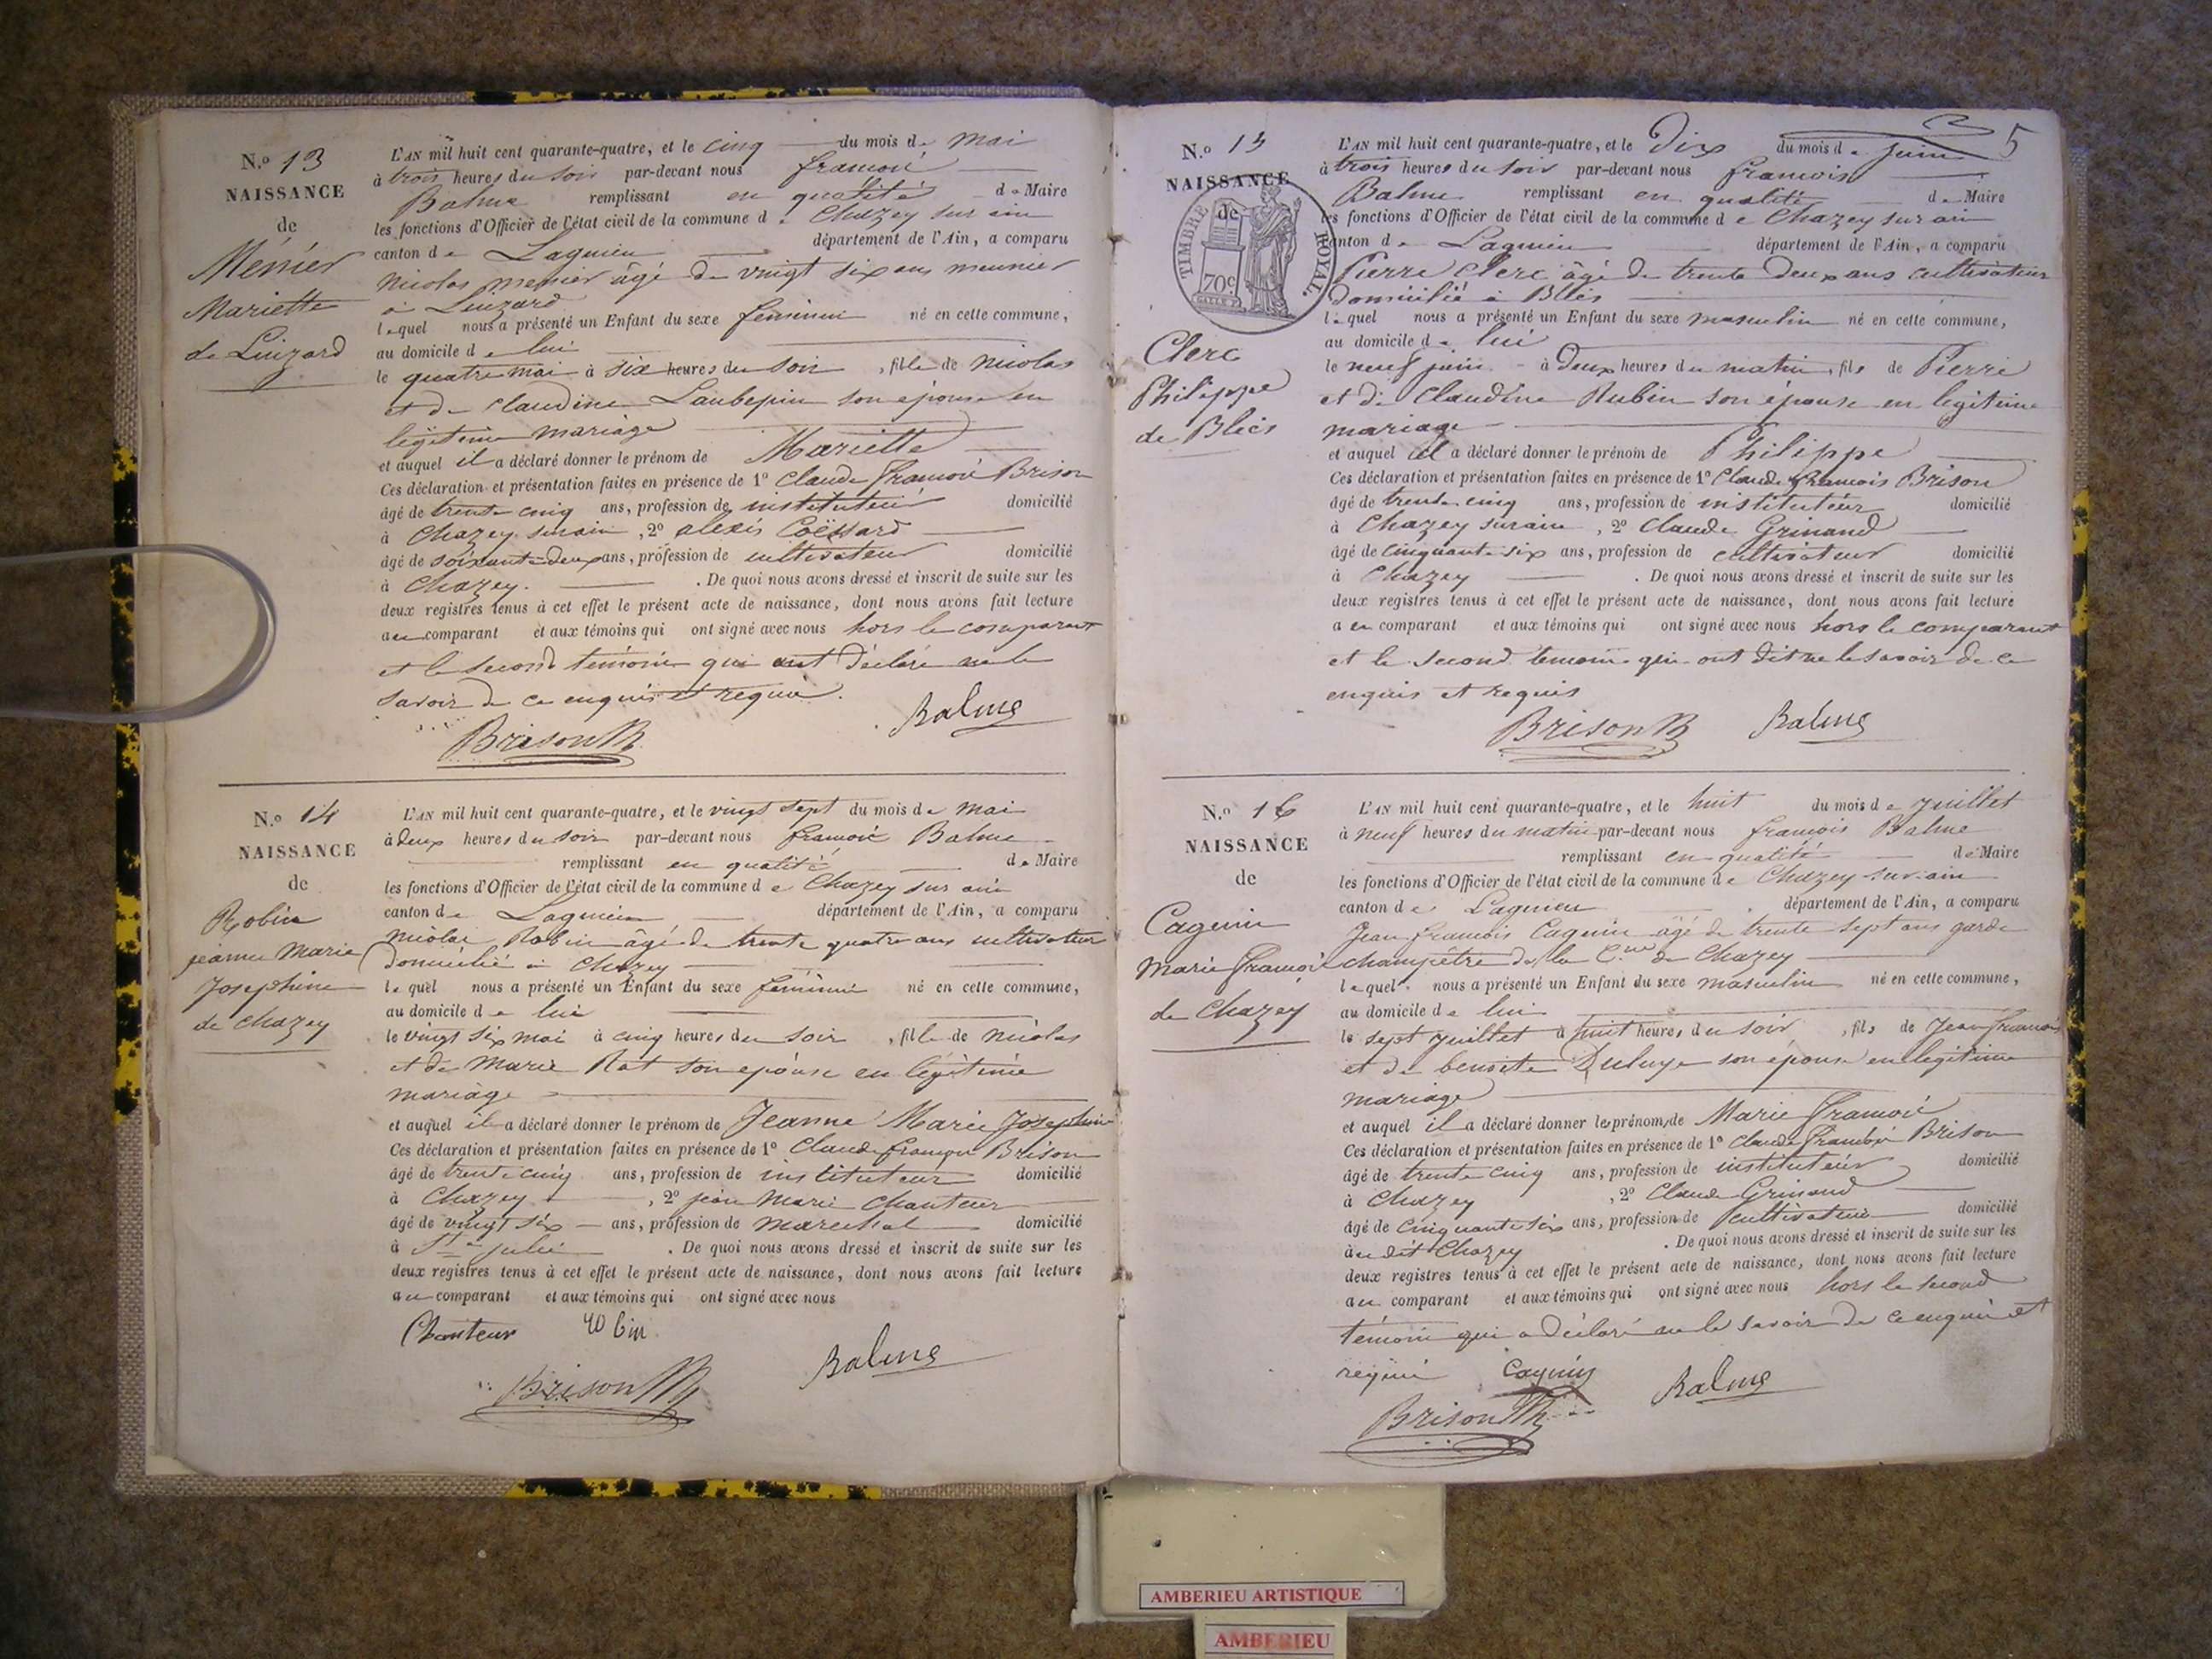 N.o 13
NAISSANCE
de
Ménier
Mariette
de Luizard
L'AN mil huit cent quarante-quatre, et le cinq du mois de mai
à trois heures du soir par-devant nous françois
Balme remplissant en qualité de Maire
les fonctions d'Officier de l'état civil de la commune de Chazey sur ain
canton de Lagnieu département de l'Ain, a comparu
Nicolas menier âgé de vingt six ans meunier
à Luizard
lequel nous a présenté un Enfant du sexe feminin né en cette commune,
au domicile de lui
le quatre mai à six heures du soir, fille de Nicolas
et de Claudine Laubepin son épouse en
legitime mariage
et auquel il a déclaré donner le prénom de Mariette
Ces déclaration et présentation faites en présence de 1o Claude françois Brison
âgé de trente cinq ans, profession de instituteur domicilié
à Chazey sur ain, 2o alexis Coëssard
âgé de soixante deux ans, profession de cultivateur domicilié
à Chazey. De quoi nous avons dressé et inscrit de suite sur les
deux registres tenus à cet effet le présent acte de naissance, dont nous avons fait lecture
au comparant et aux témoins qui ont signé avec nous hors le comparant
et le second temoin qui ont déclaré ne le
savoir de ce enquis et requis.
Balme
Brison
N.o 14
NAISSANCE
de
Robin
jeanne Marie
Josephine
de Chazey
L'AN mil huit cent quarante-quatre, et le vingt sept du mois de mai
à deux heures du soir par-devant nous françois Balme
remplissant en qualité de Maire
les fonctions d'Officier de l'état civil de la commune de Chazey sur ain
canton de Lagnieu département de l'Ain, a comparu
Nicolas Robin âgé de trente quatre ans cultivateur
domicilié à Chazey
lequel nous a présenté un Enfant du sexe féminin né en cette commune,
au domicile de lui
le vingt six mai à cinq heures du soir, fille de Nicolas
et de Marie Rat son epouse en légitime
mariage
et auquel il a déclaré donner le prénom de Jeanne Marie Josephine
Ces déclaration et présentation faites en présence de 1o Claude françois Brison
âgé de trente cinq ans, profession de instituteur domicilié
à Chazey, 2o jean Marie Chanteur
âgé de vingt six ans, profession de marechal domicilié
à julie. De quoi nous avons dressé et inscrit de suite sur les
deux registres tenus à cet effet le présent acte de naissance, dont nous avons fait lecture
au comparant et aux témoins qui ont signé avec nous
Chanteur robin
Balme
Brison
5
N.o 15
NAISSANCE
de
TIMBRE ROYAL.
70c
Clerc
Philippe
de Bliès
L'AN mil huit cent quarante-quatre, et le Dix du mois de juin
à trois heures du soir par-devant nous françois
Balme remplissant en qualité de Maire
les fonctions d'Officier de l'état civil de la commune de Chazey sur ain
canton de Lagnieu département de l'Ain, a comparu
Pierre Clerc âgé de trente deux ans cultivateur
domicilié à Bliès
lequel nous a présenté un Enfant du sexe masculin né en cette commune,
au domicile de lui
le neuf juin à deux heures du matin, fils de Pierre
et de Claudine Rubin son épouse en legitime
mariage
et auquel il a déclaré donner le prénom de Philippe
Ces déclaration et présentation faites en présence de 1o Claude françois Brison
âgé de trente cinq ans, profession de instituteur domicilié
à Chazey sur ain, 2o Claude Grinand
âgé de cinquante six ans, profession de cultivateur domicilié
à Chazey. De quoi nous avons dressé et inscrit de suite sur les
deux registres tenus à cet effet le présent acte de naissance, dont nous avons fait lecture
au comparant et aux témoins qui ont signé avec nous hors le comparant
et le second temoin qui ont dit ne le savoir de ce
enquis et requis
Brison Balme
N.o 16
NAISSANCE
de
Cagnin
Marie françois
de Chazey
L'AN mil huit cent quarante-quatre, et le huit du mois de juillet
à neuf heures du matin par-devant nous françois Balme
remplissant en qualité de Maire
les fonctions d'Officier de l'état civil de la commune de Chazey-sur-ain
canton de Lagnieu département de l'Ain, a comparu
Jean françois Cagnin âgé de trente sept ans garde
champêtre de la C.ne de Chazey
lequel nous a présenté un Enfant du sexe masculin né en cette commune,
au domicile de lui
le sept juillet à huit heures du soir, fils de Jean françois
et de benoite son épouse en légitime
mariage
et auquel il a déclaré donner les prénom de Marie françois
Ces déclaration et présentation faites en présence de 1o Claude françois Brison
âgé de trente cinq ans, profession de instituteur domicilié
à Chazey, 2o Claude Grinand
âgé de cinquante six ans, profession de cultivateur domicilié
à u dit Chazey. De quoi nous avons dressé et inscrit de suite sur les
deux registres tenus à cet effet le présent acte de naissance, dont nous avons fait lecture
au comparant et aux témoins qui ont signé avec nous hors le second
témoin qui a déclaré ne le savoir de ce enquis et
requis Cagnin Balme
Brison
AMBERIEU ARTISTIQUE
AMBERIEU